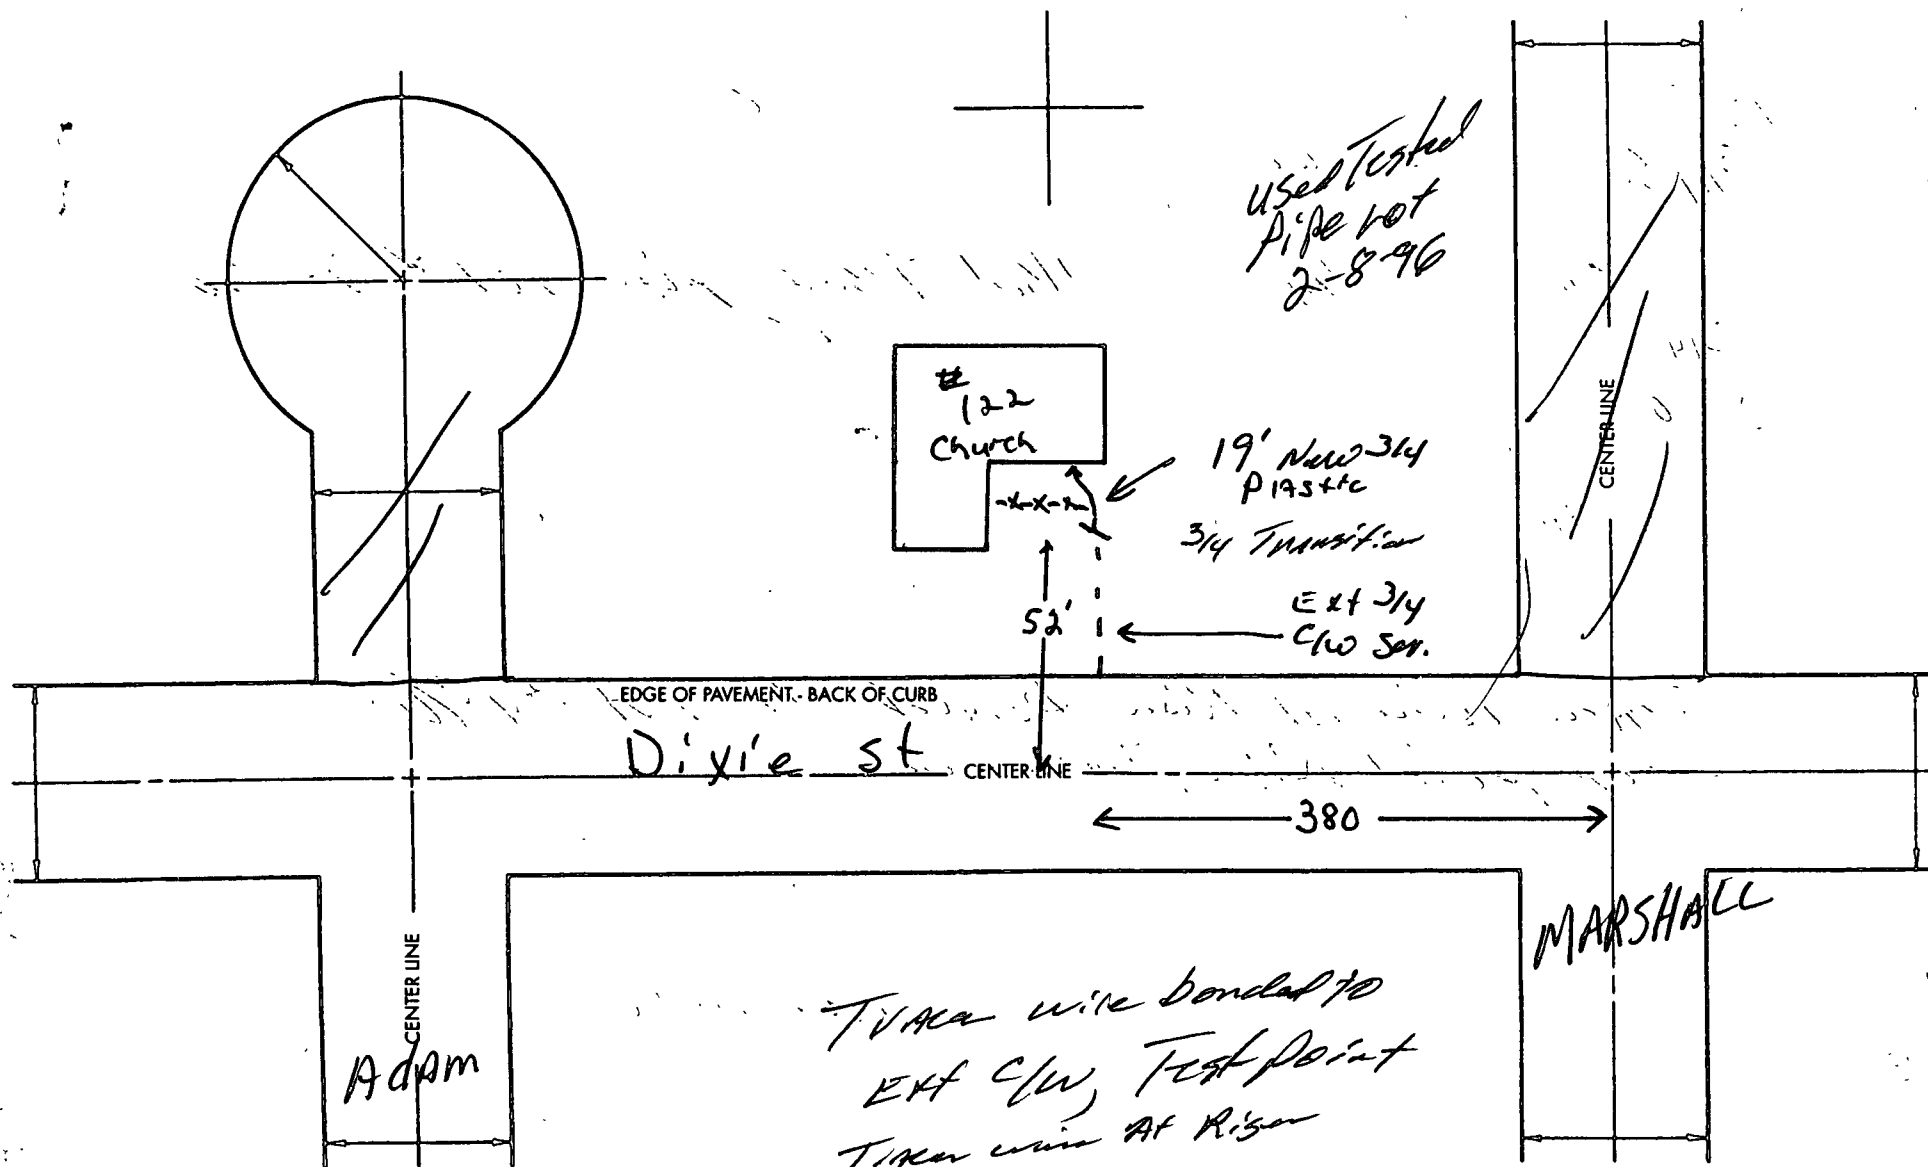 Used Tested
Pipe
2-8-96
#
122
Church
19' New 3/4
Plastic
3/4 Transition
Ext 3/4
C/W Ser.
52'
CENTER LINE
EDGE OF PAVEMENT - BACK OF CURB
Dixie st
CENTER LINE
380
MARSHALL
CENTER LINE
Adam
Tracer wire bonded to
Ext C/W, Test point
Tracer wire At Riser